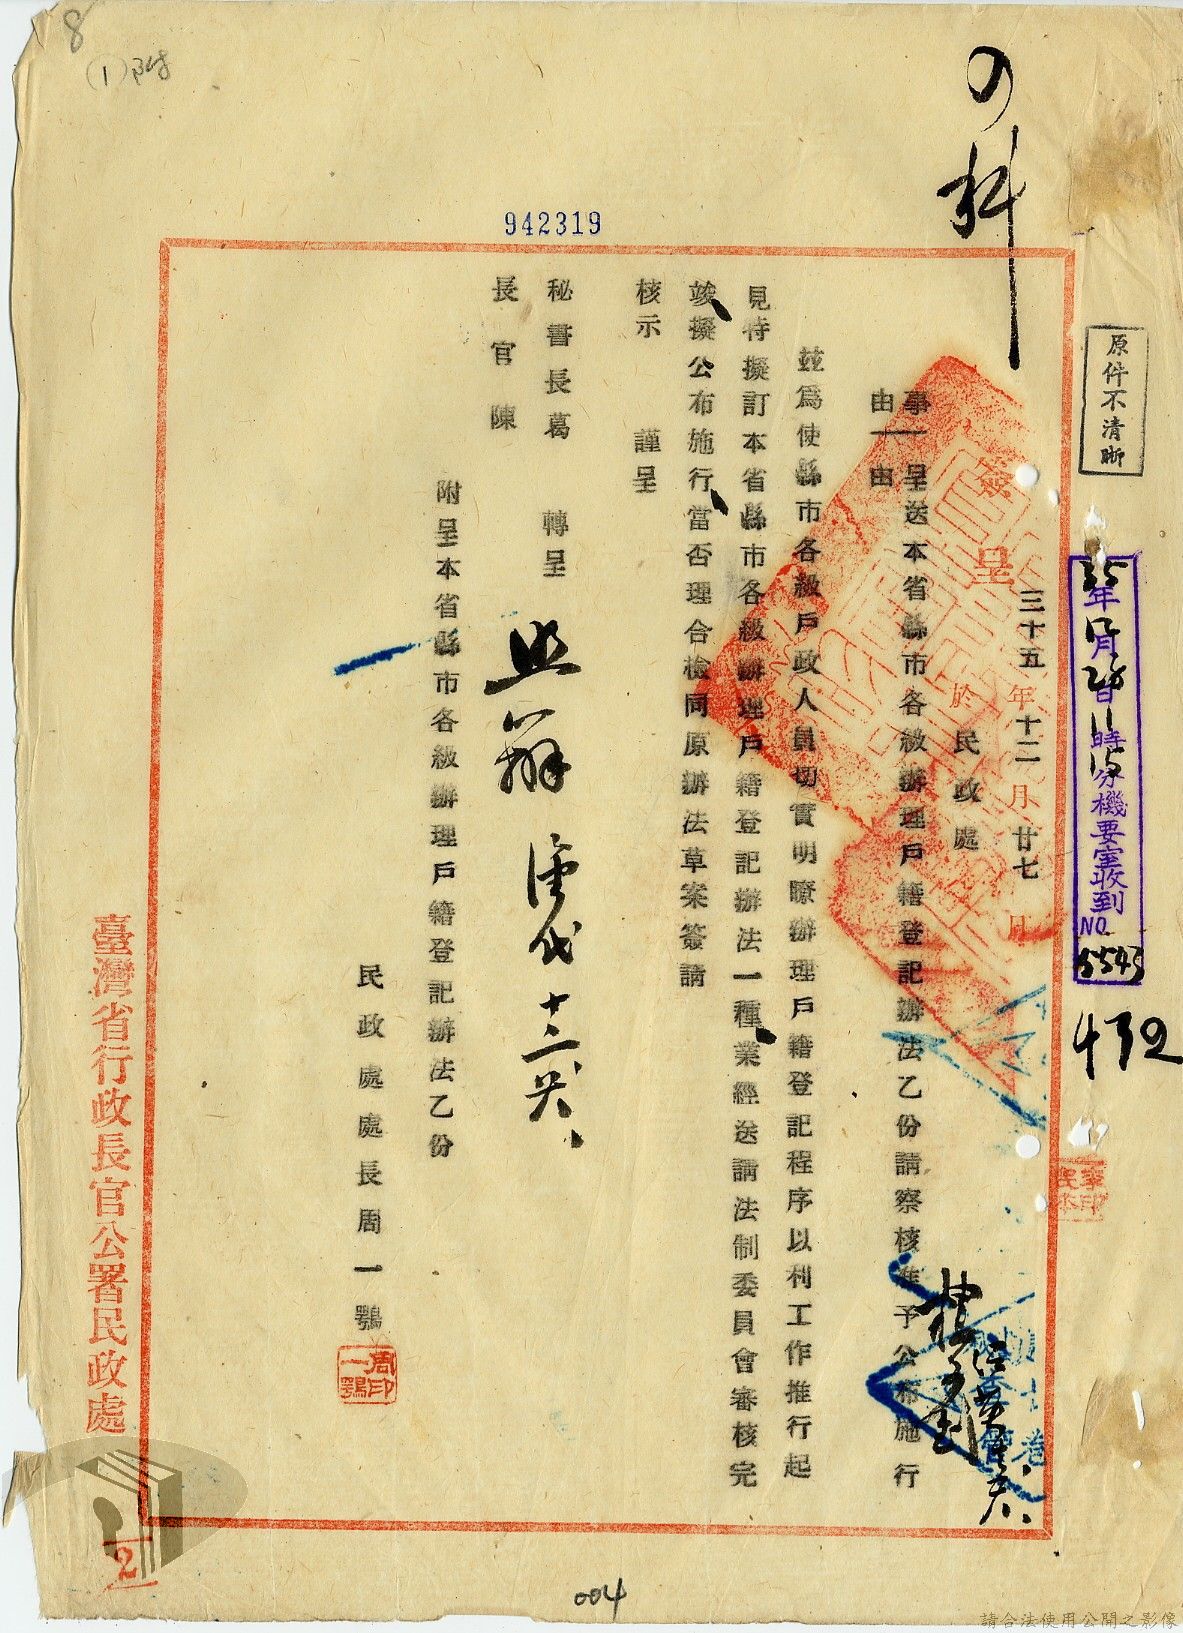 8
(1)附
942319
原件不清晰
35年12月28日11時15分機要室收到
NO. 5543
472
簽呈
三十五年十二月廿七日
於民政處
事由
一由
呈送本省縣市各級辦理戶籍登記辦法乙份請察核准予公布施行
茲爲使縣市各級戶政人員切實明瞭辦理戶籍登記程序以利工作推行起
見特擬訂本省縣市各級辦理戶籍登記辦法一種業經送請法制委員會審核完
竣擬公布施行當否理合檢同原辦法草案簽請
核示 謹呈
秘書長葛 轉呈
長官 陳
附呈本省縣市各級辦理戶籍登記辦法乙份
民政處處長周一鶚
周一鶚印
臺灣省行政長官公署民政處
2
004
請合法使用公開之影像